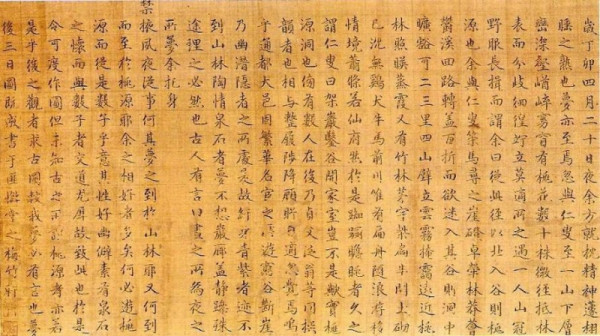 歲丁卯四月二十日夜余方就枕精神蘧栩
睡之熟也夢亦至焉忽與仁叟至一山下層
巒深壑崷崒窈窅有桃花數十株微徑抵林
表而分岐徊徨竚立莫適所之遇一人山冠
野服長揖而謂余曰從此徑以北入谷則桃
源也余與仁叟策馬尋之崖磴卓犖林莽薈
鬱溪回路轉盖百折而欲迷入其谷則洞中
曠豁可二三里四山壁立雲霧掩靄遠近桃
林照暎蒸霞又有竹林茅宇柴扃半開土砌
已沈無鷄犬牛馬前川唯有扁舟隨浪游移
情境蕭條若仙府然於是踟躕瞻眺者久之
謂仁叟曰架巖鑿谷開家室豈不是歟實桃
源洞也傍有數人在後乃貞父泛翁等同撰
韻者也相與整履陟降顧眄自適忽覺焉嗚
呼通都大邑固繁華名宦之所遊窮谷斷崖
乃幽潛隱者之所處是故紆身青紫者迹不
到山林陶情泉石者夢不想巖廊盖靜躁殊
途理之必然也古人有言曰晝之所爲夜之
所夢余托身
禁掖夙夜從事何其夢之到於山林耶又何到
而至於桃源耶余之相好者多矣何必遊桃
源而從是數子乎意其性好幽僻素有泉石
之懷而與數子者交道尤厚故致此也於是
令可度作圖但未知古之所謂桃源者亦若
是乎後之觀者求古圖較我夢必有言也夢
後三日圖旣成書于匪懈堂之梅竹軒